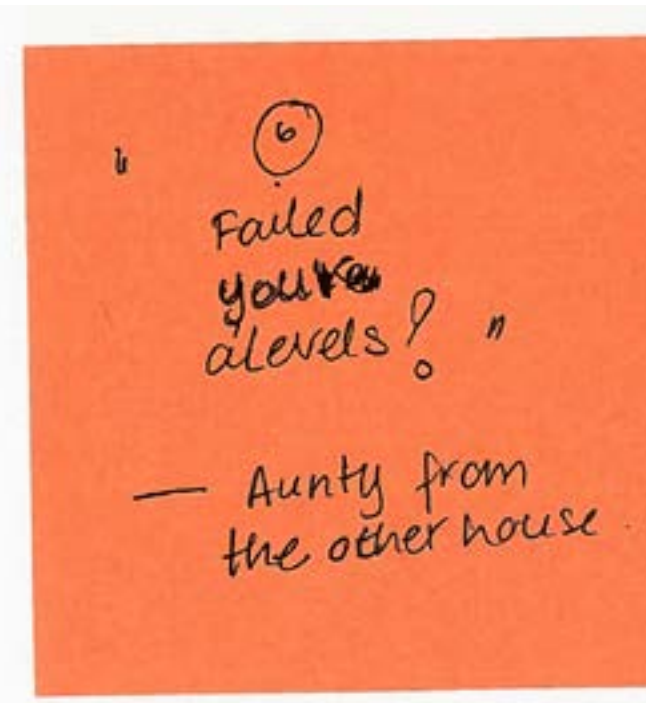 6
"
Failed
your
alevels? "
— Aunty from
the other house.